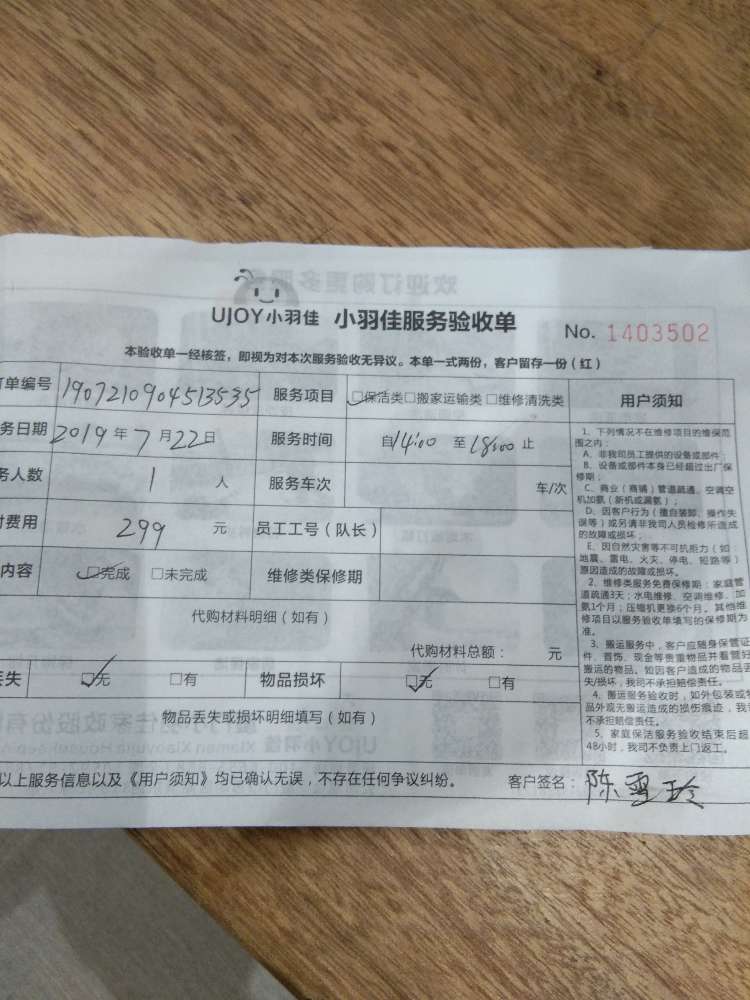 UJOY小羽佳 小羽佳服务验收单 No. 1403502
本验收单一经核签，即视为对本次服务验收无异议。本单一式两份，客户留存一份（红）
单编号 1907210904513535 服务项目 ☑保洁类□搬家运输类□维修清洗类 用户须知
务日期 2019年7月22日 服务时间 自14:00 至 18:00 止
务人数 1 人 服务车次 车/次
费用 299 元 员工工号（队长）
内容 ☑完成 □未完成 维修类保修期
代购材料明细（如有）
代购材料总额： 元
丢失 ☑无 □有 物品损坏 ☑无 □有
物品丢失或损坏明细填写（如有）
以上服务信息以及《用户须知》均已确认无误，不存在任何争议纠纷。 客户签名：陈雪玲
1、下列情况不在维修项目的维保范
围之内：
A、非我司员工提供的设备或部件；
B、设备或部件本身已经超过出厂保
修期；
C、商业（商铺）管道疏通、空调空
机加氨（新机或漏氨）；
D、因客户行为（擅自装卸、操作失
误等）或另请非我司人员检修所造成
的故障或损坏；
E、因自然灾害等不可抗拒力（如
地震、雷电、火灾、停电、短路等）
原因造成的故障或损坏。
2、维修类服务免费保修期：家庭管
道疏通3天；水电维修、空调维修、加
氨1个月；压缩机更换6个月。其他维
修项目以服务验收单填写的保修期为
准。
3、搬运服务中，客户应随身保管证
件、首饰、现金等贵重物品并看管好
搬运的物品。如因客户造成的物品丢
失/损坏，我司不承担赔偿责任。
4、搬运服务验收时，如外包装或物
品外观无搬运造成的损伤痕迹，我司
不承担赔偿责任。
5、家庭保洁服务验收结束后超
48小时，我司不负责上门返工。